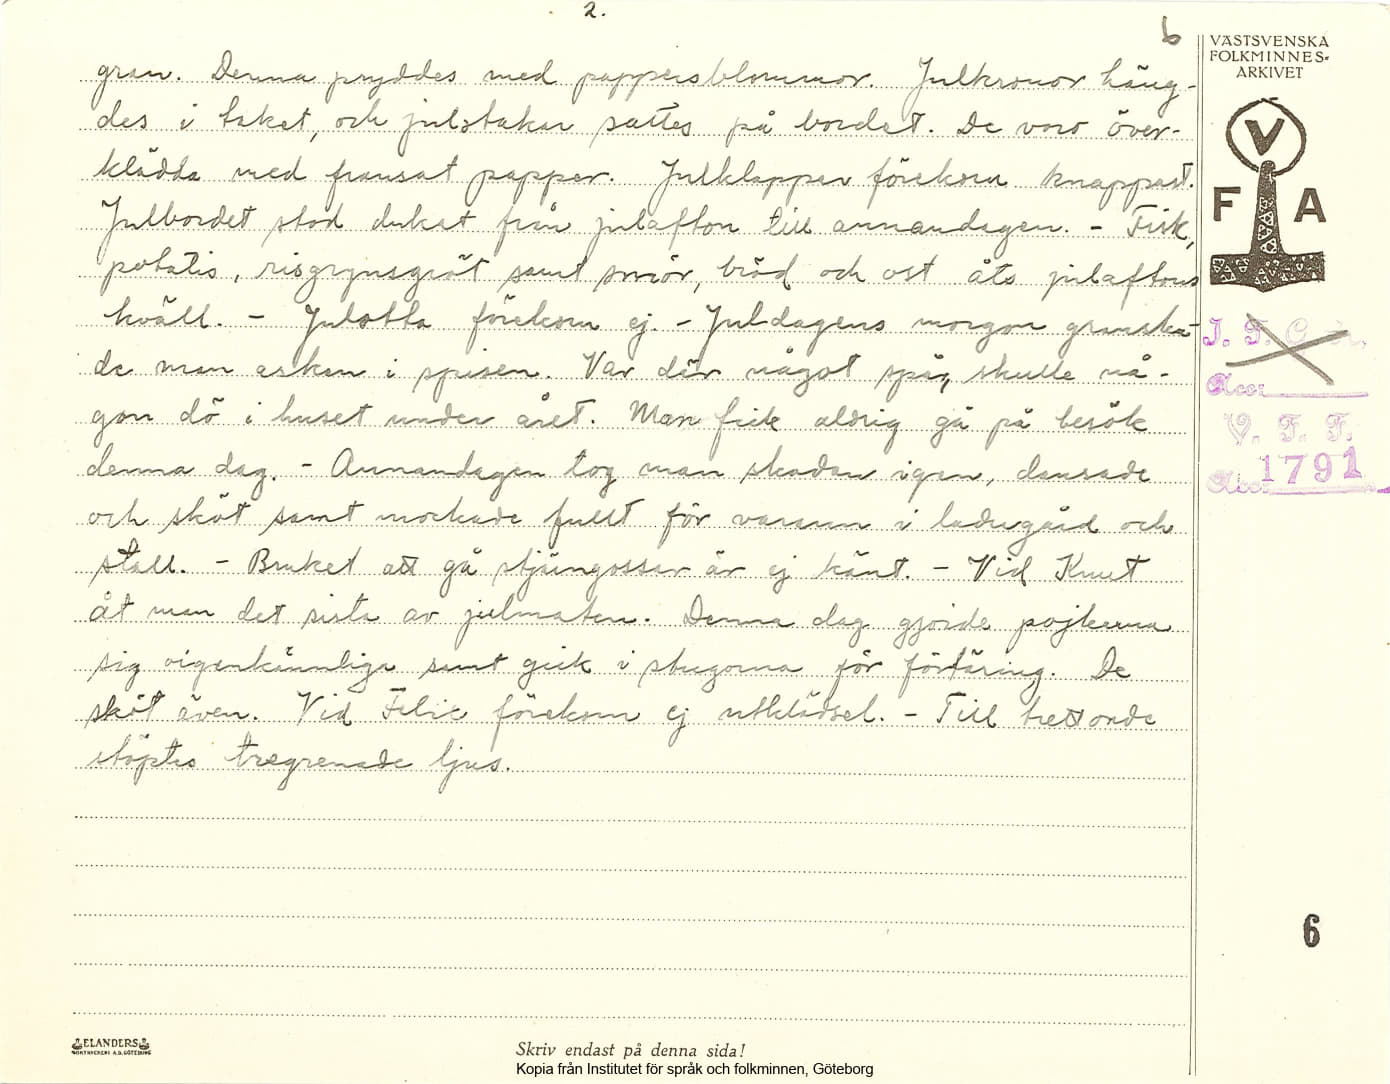 2.
6
VÄSTSVENSKA
FOLKMINNES-
ARKIVET
gran. Denna pryddes med pappersblommor. Julkronor häng-
des i taket, och julstakar sattes på bordet. De voro över-
klädda med fransat papper. Julklappar förekom knappast.
Julbordet stod dukat från julafton till annandagen. - Fisk,
potatis, risgrynsgröt samt smör, bröd och ost åts julaftons
kväll. - Julotta förekom ej. - Juldagens morgon granska-
de man askan i spisen. Var där något spår, skulle nå-
gon dö i huset under året. Man fick aldrig gå på besök
denna dag. - Annandagen tog man skadan igen, dansade
och sköt samt mockade fullt för varann i ladugård och
stall. - Bruket att gå stjärngossar är ej känt. - Vid Knut
åt man det sista av julmaten. Denna dag gjorde pojkarna
sig oigenkännliga samt gick i stugorna för förtäring. De
sköt även. Vid Felix förekom ej utklädsel. - Till trettonde
stöptes tregrenade ljus.
V
F A
I. F. G
Acc
V. F. F.
Acc. 1791
6
ELANDERS
BOKTRYCKERI A.B. GÖTEBORG
Skriv endast på denna sida!
Kopia från Institutet för språk och folkminnen, Göteborg